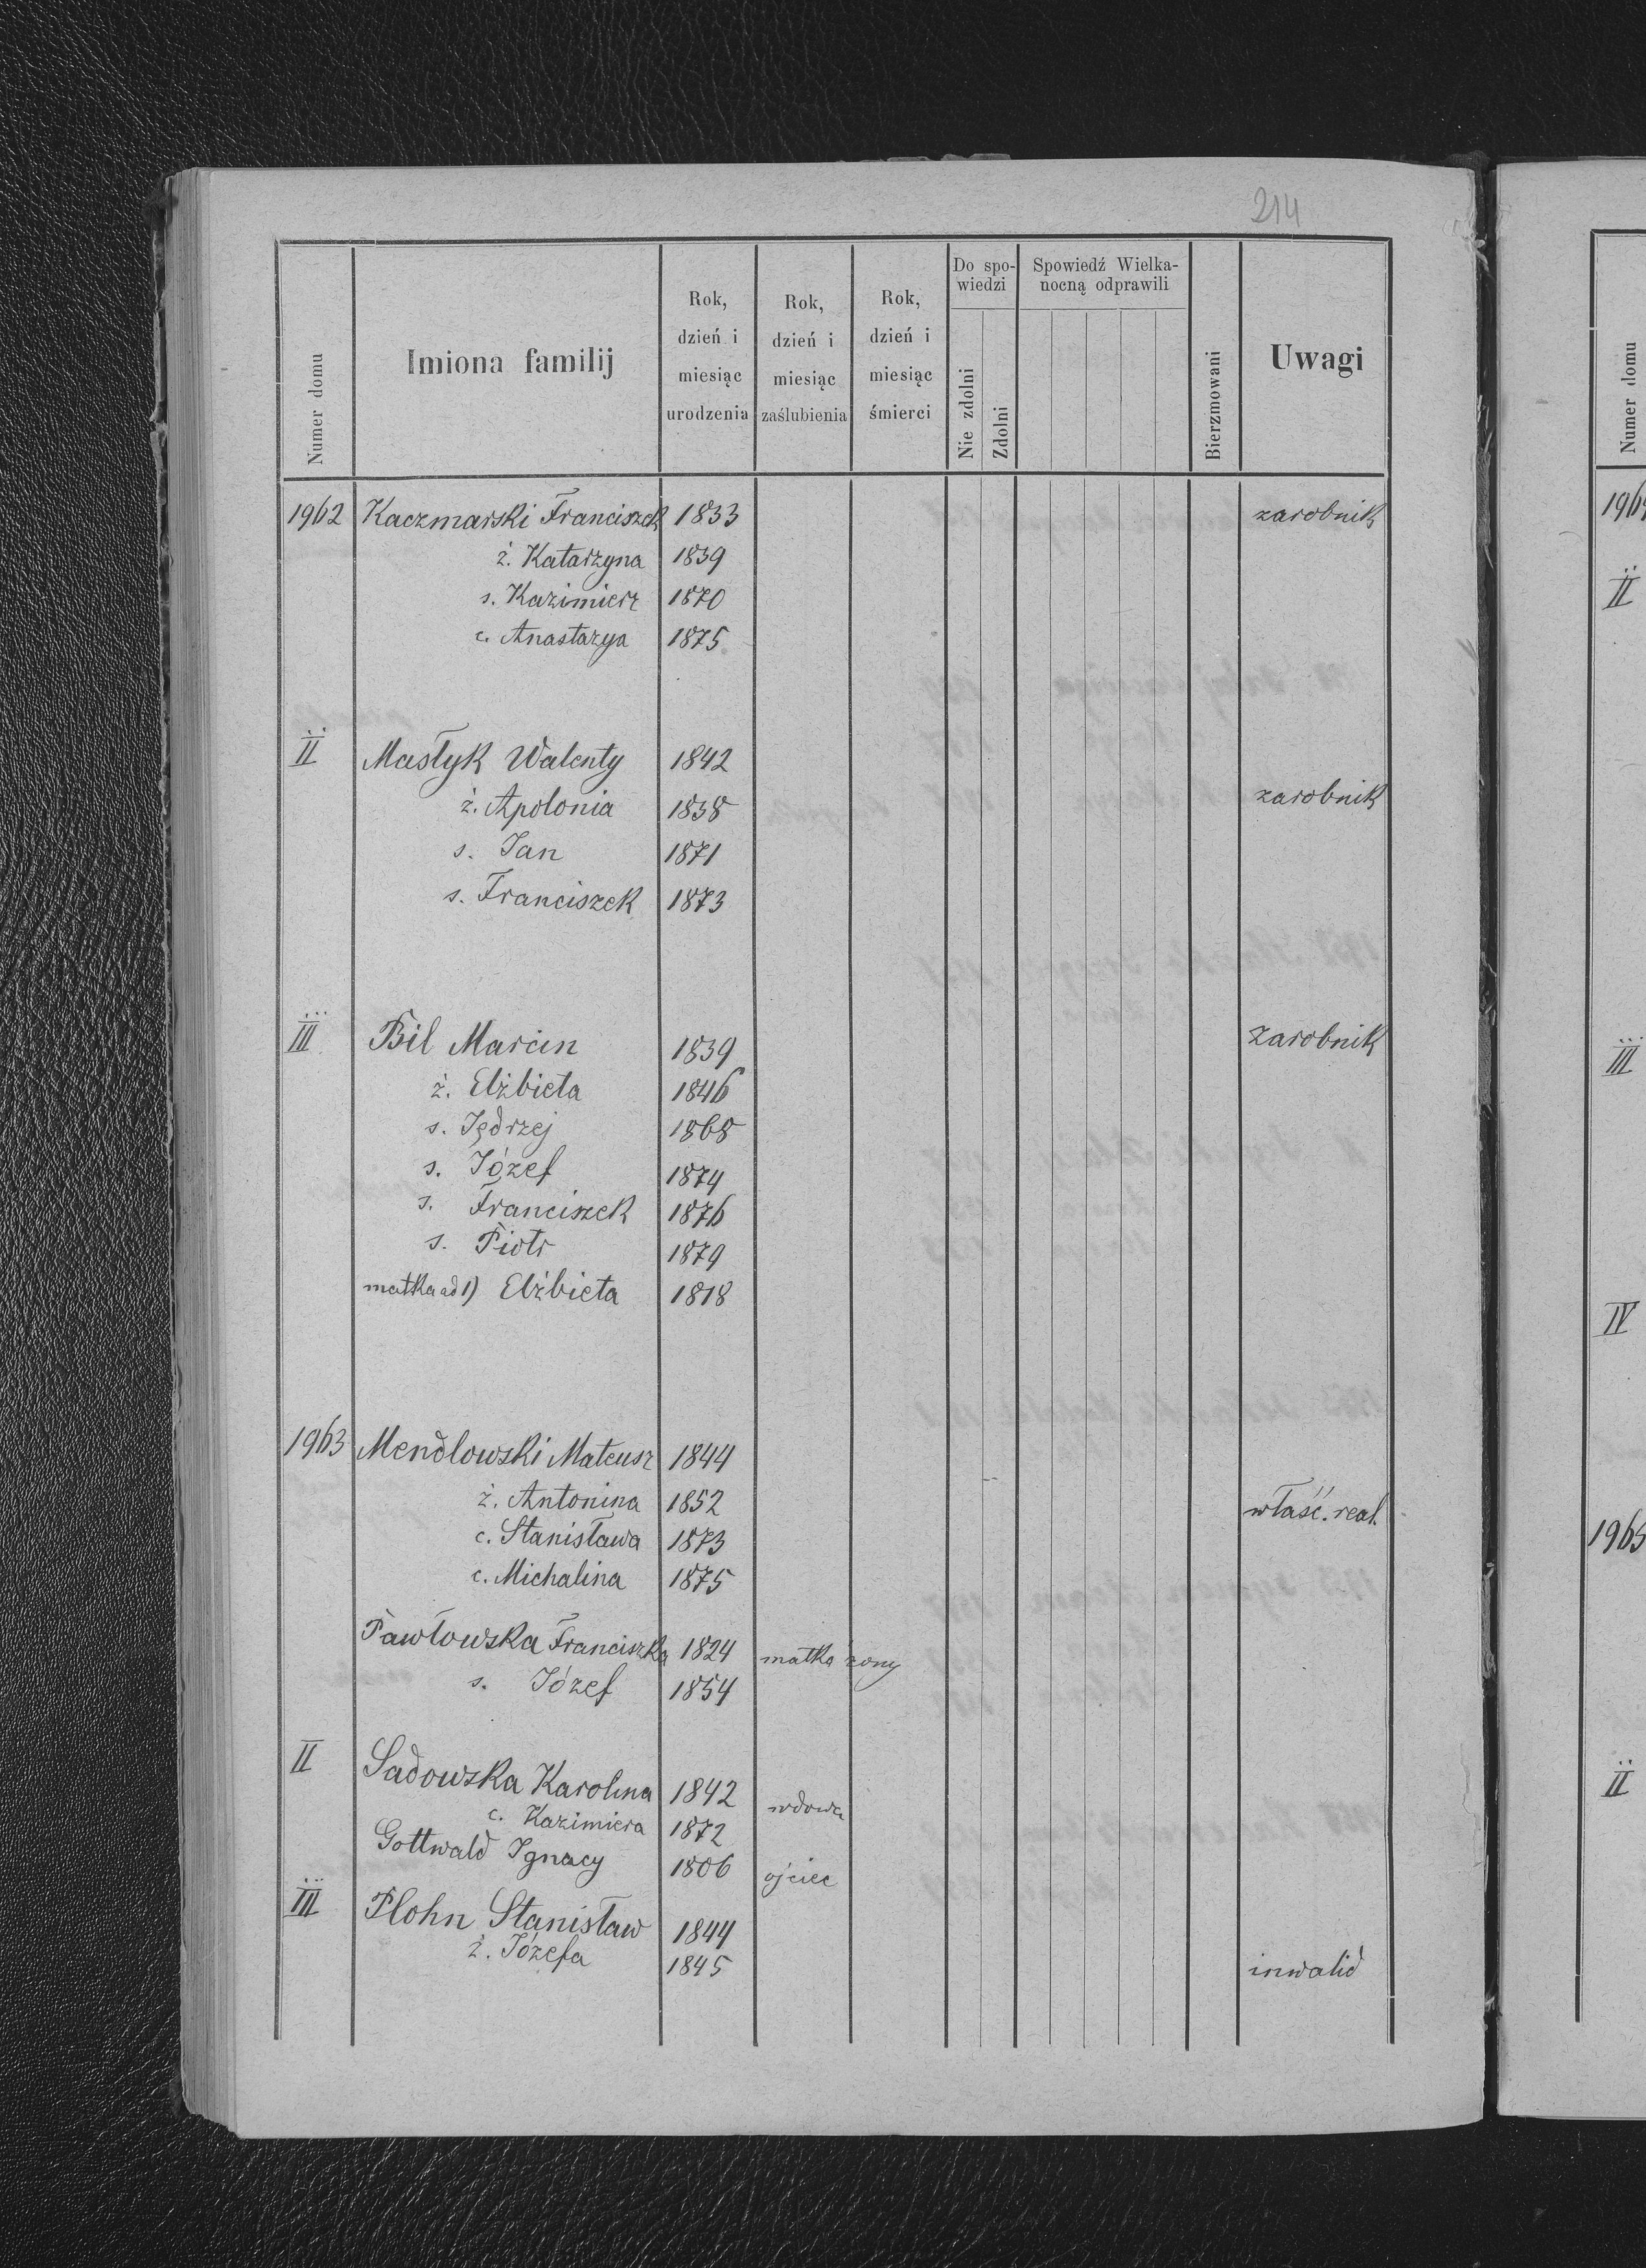 214
Numer domu
Imiona familij
Rok, dzień i miesiąc urodzenia
Rok, dzień i miesiąc zaślubienia
Rok, dzień i miesiąc śmierci
Do spo-
wiedzi
Nie zdolni
Zdolni
Spowiedź Wielka-
nocną odprawili
Bierzmowani
Uwagi
1962 Kaczmarski Franciszek 1833 zarobnik
ż. Katarzyna 1839
s. Kazimierz 1870
c. Anastazya 1875
II Mastyk Walenty 1842
ż. Apolonia 1838 zarobnik
s. Jan 1871
s. Franciszek 1873
III Bil Marcin 1839 zarobnik
ż. Elżbieta 1846
s. Jędrzej 1868
s. Józef 1874
s. Franciszek 1876
s. Piotr 1879
matka ad 1) Elżbieta 1818
1963 Mendlowski Mateusz 1844
ż. Antonina 1852 właść. real.
c. Stanisława 1873
c. Michalina 1875
Pawłowska Franciszka 1824 matka żony
s. Józef 1854
II Sadowska Karolina 1842 wdowa
c. Kazimiera 1872
Gottwald Ignacy 1806 ojciec
III Plohn Stanisław 1844
ż. Józefa 1845 inwalid
Numer domu
196
II
III
IV
1965
II